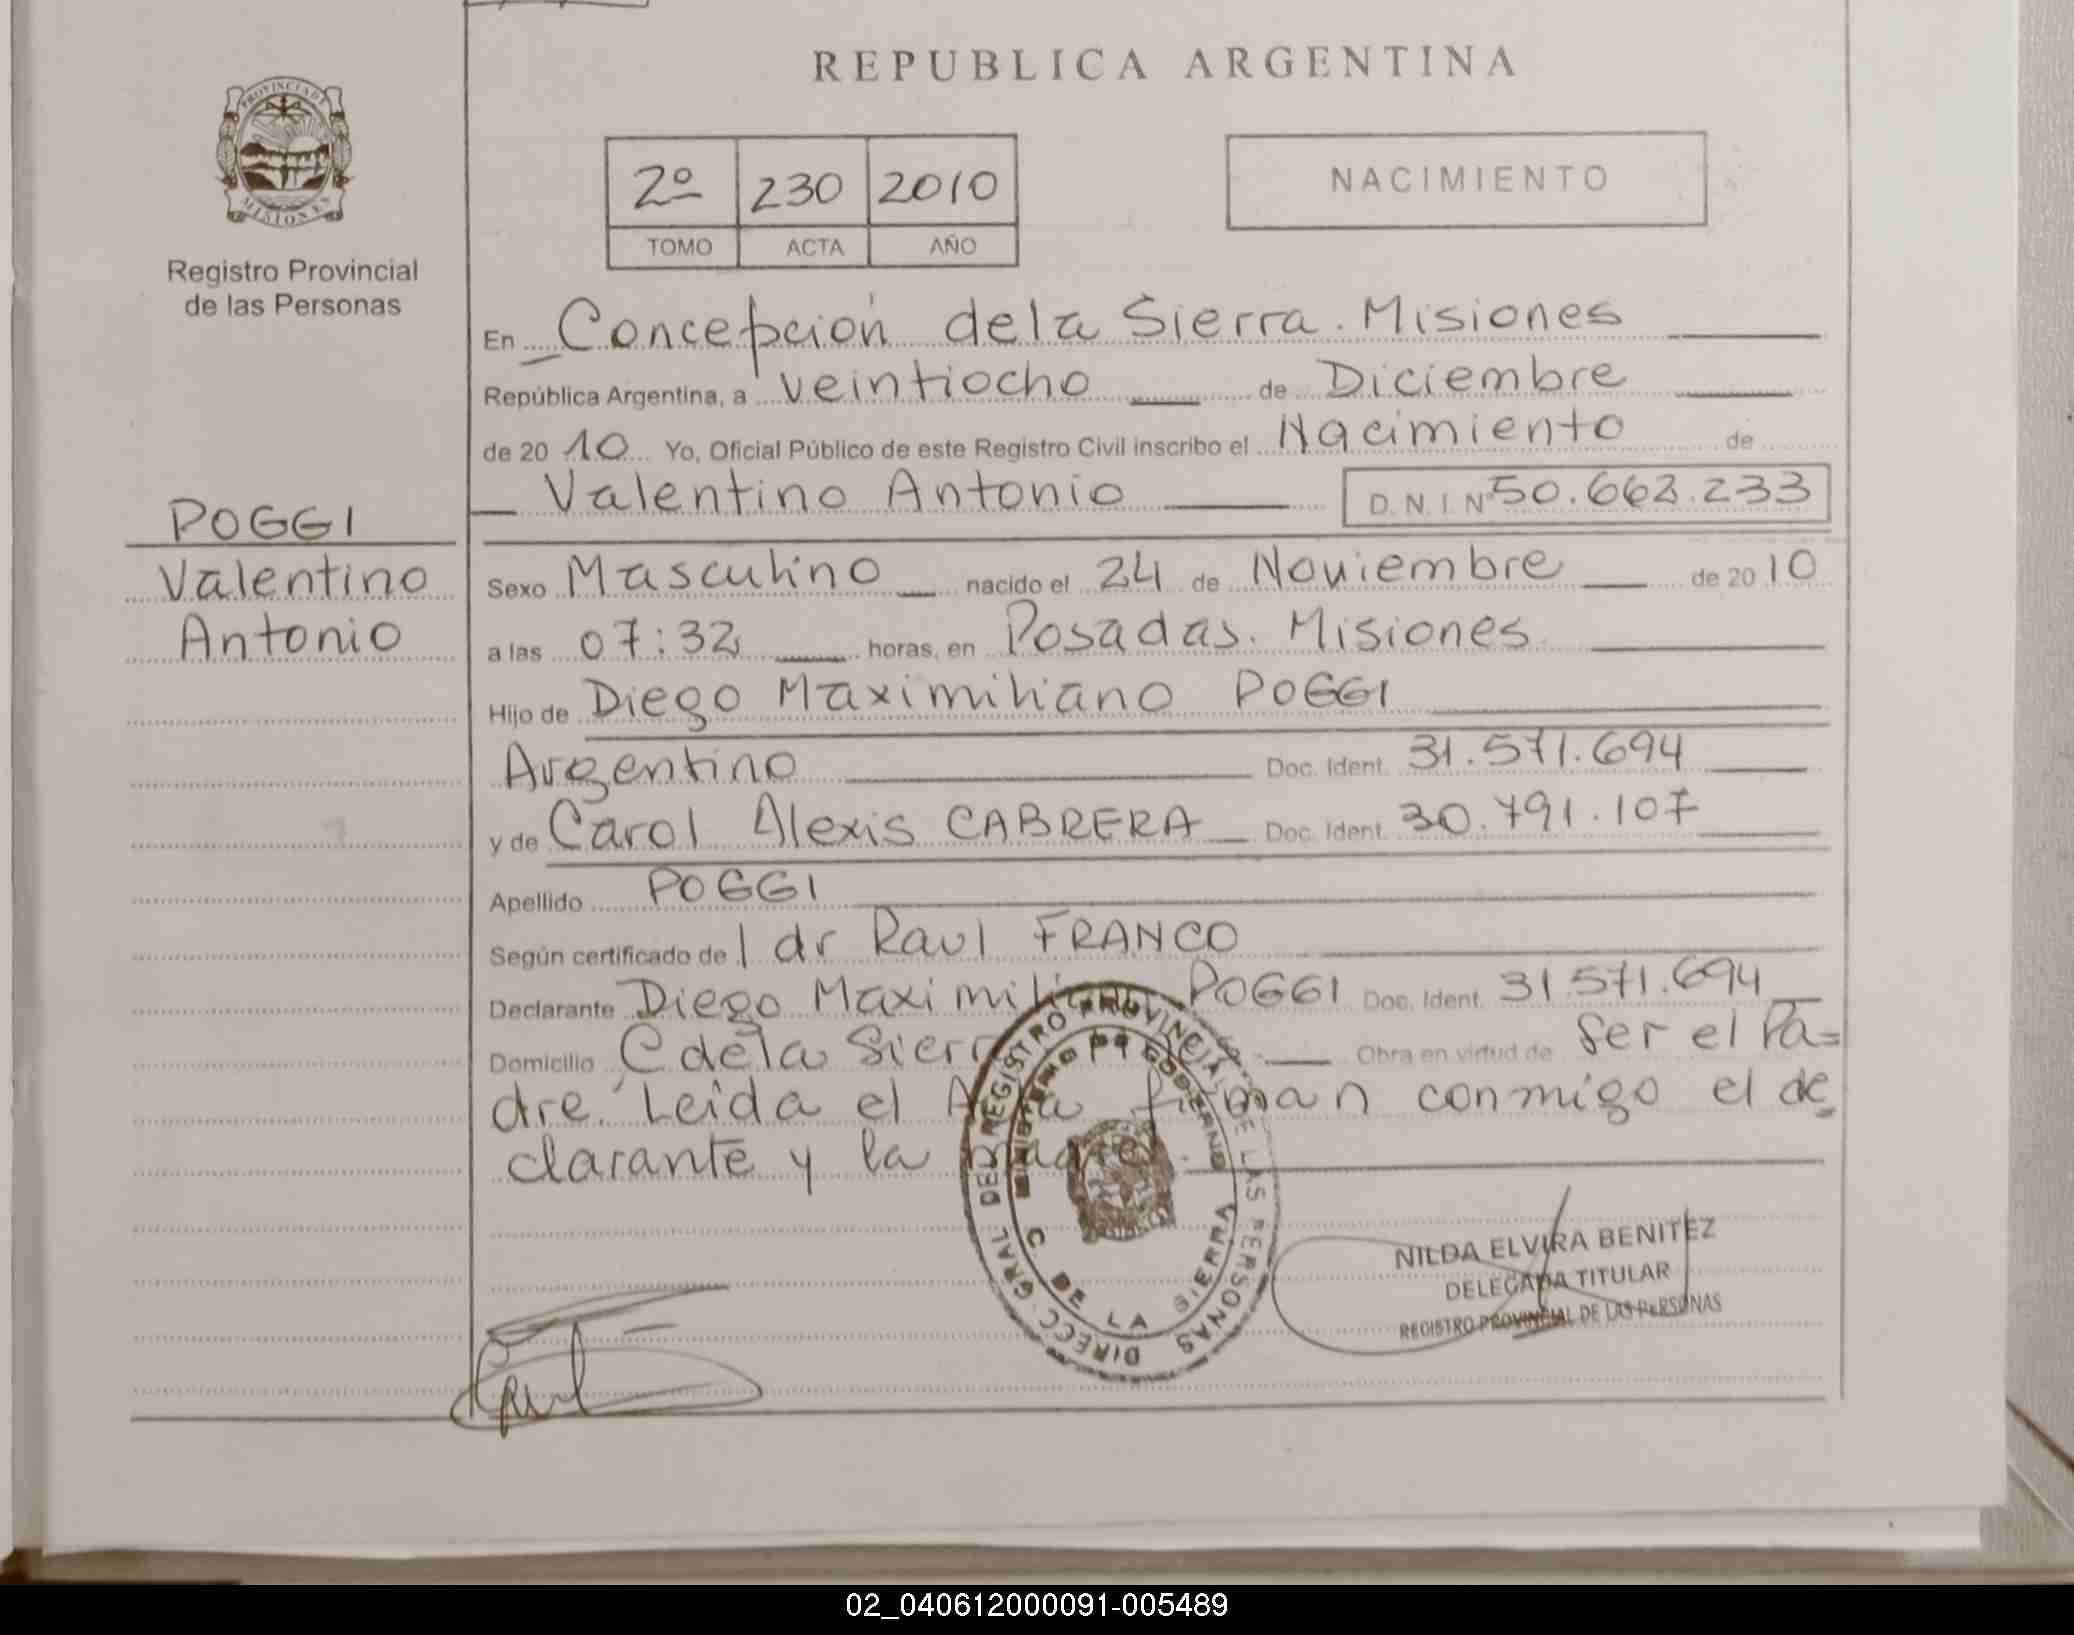 PROVINCIA DE
MISIONES
Registro Provincial
de las Personas
POGGI
Valentino
Antonio
REPUBLICA ARGENTINA
2º 230 2010
TOMO ACTA AÑO
NACIMIENTO
En Concepción de la Sierra. Misiones
República Argentina, a veintiocho de Diciembre
de 20 10 Yo, Oficial Público de este Registro Civil inscribo el Nacimiento de
Valentino Antonio D. N. I. Nº 50.662.233
Sexo Masculino nacido el 24 de Noviembre de 20 10
a las 07:32 horas, en Posadas. Misiones
Hijo de Diego Maximiliano POGGI
Argentino Doc. Ident. 31.571.694
y de Carol Alexis CABRERA Doc. Ident. 30.791.107
Apellido POGGI
Según certificado de l dr Raul FRANCO
Declarante Diego Maximiliano POGGI Doc. Ident. 31 571.694
Domicilio C de la Sierra Obra en virtud de Ser el Pa=
dre. Leída el Acta firman conmigo el de
clarante y la madre.
DIRECC. GRAL. DEL REGISTRO PROVINCIAL DE LAS PERSONAS
MINISTERIO DE GOBIERNO
C DE LA SIERRA
NILDA ELVIRA BENITEZ
DELEGADA TITULAR
REGISTRO PROVINCIAL DE LAS PERSONAS
02_040612000091-005489